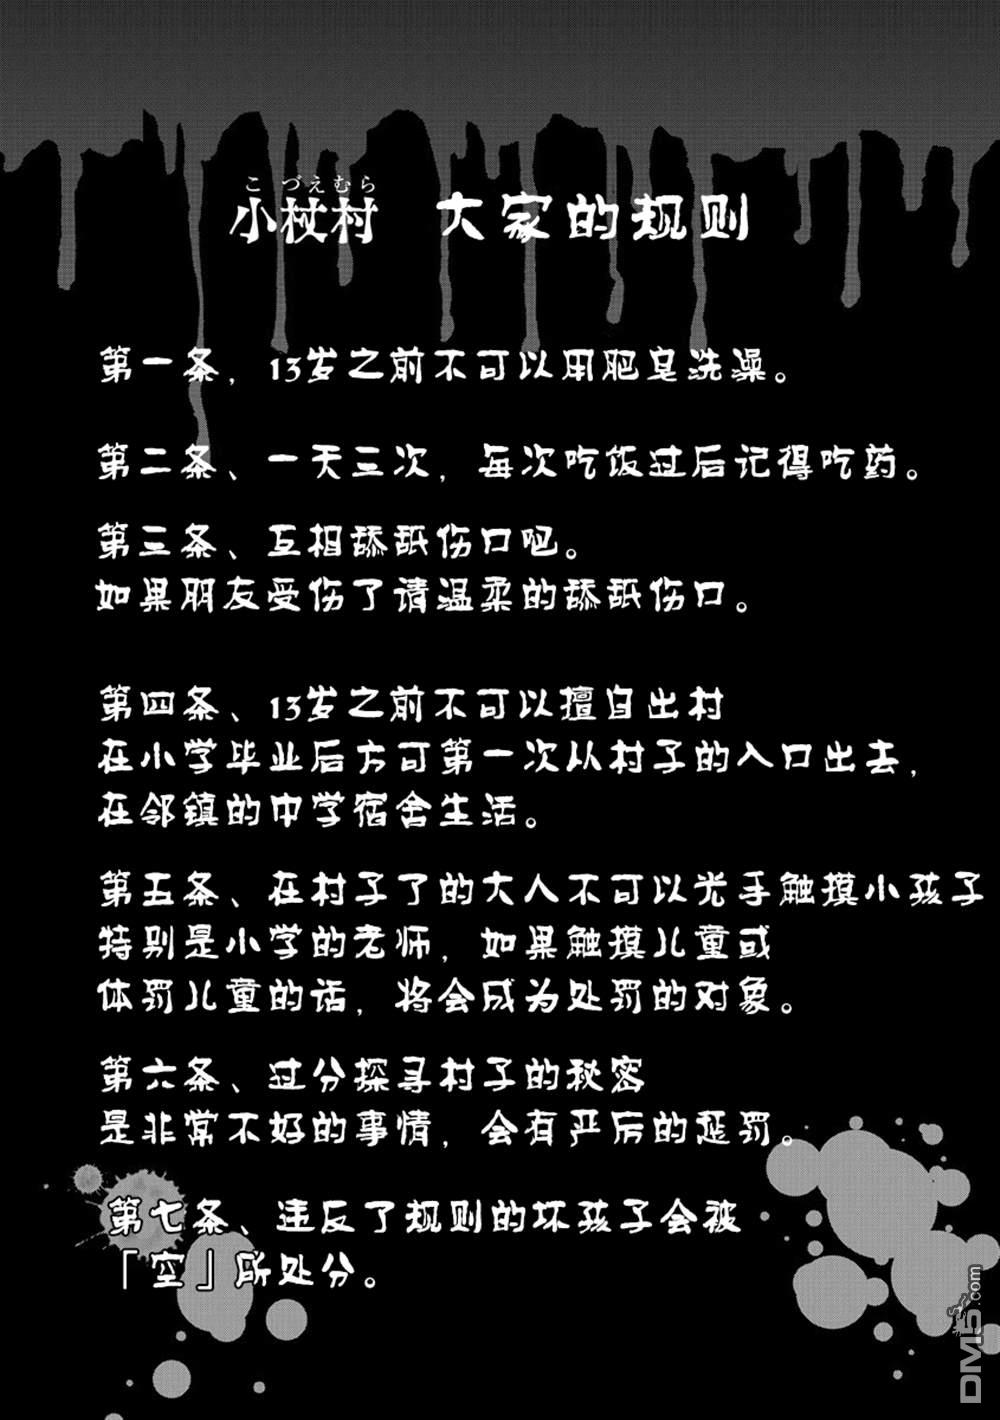 こづえむら
小杖村 大家的规则
第一条，13岁之前不可以用肥皂洗澡。
第二条、一天三次，每次吃饭过后记得吃药。
第三条、互相舔舐伤口吧。
如果朋友受伤了请温柔的舔舐伤口。
第四条、13岁之前不可以擅自出村
在小学毕业后方可第一次从村子的入口出去，
在邻镇的中学宿舍生活。
第五条、在村子了的大人不可以光手触摸小孩子
特别是小学的老师，如果触摸儿童或
体罚儿童的话，将会成为处罚的对象。
第六条、过分探寻村子的秘密
是非常不好的事情，会有严厉的惩罚。
第七条、违反了规则的坏孩子会被
「空」所处分。
DM5.com